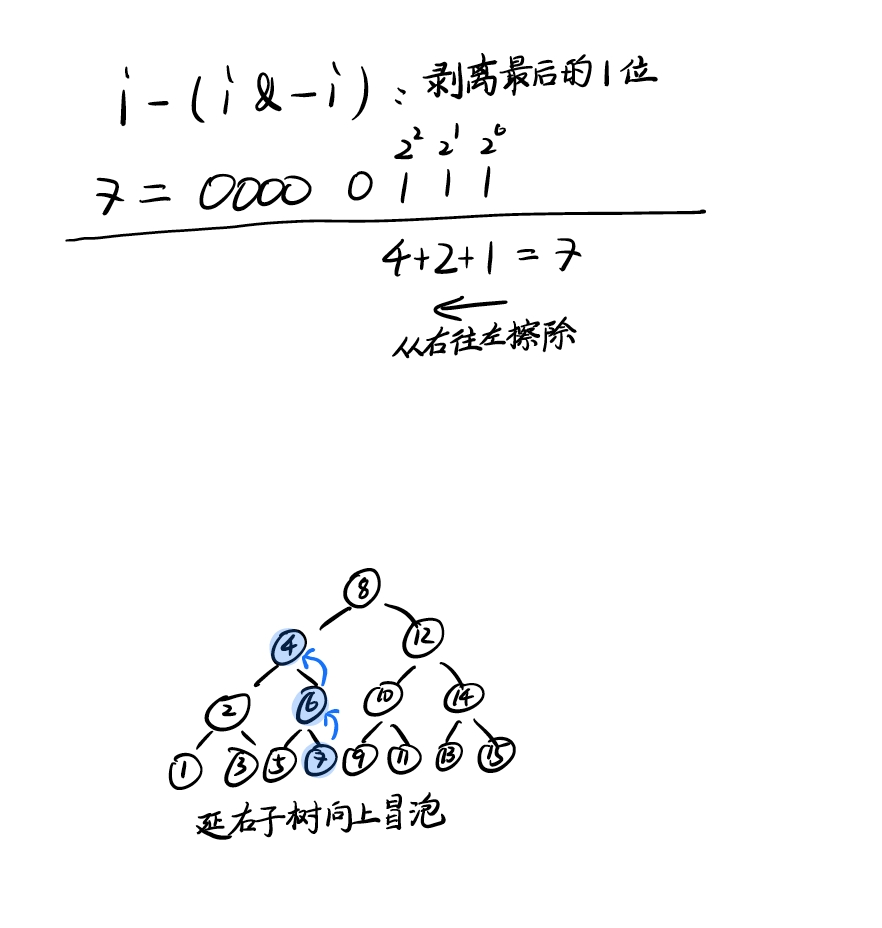 i-(i&-i): 剥离最后的1位
2² 2¹ 2⁰
7 = 0000 0111
4+2+1 = 7
从右往左擦除
8
4 12
2 6 10 14
1 3 5 7 9 11 13 15
延右子树向上冒泡